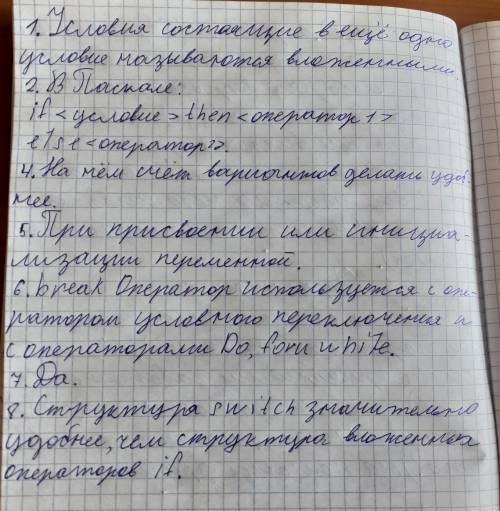 1. Условия состоящие в ещё одно
условие называются вложенными.
2. В Паскале:
if <условие> then <оператор 1>
else <оператор2>.
4. На нём счёт вариантов делать удоб-
нее.
5. При присвоении или инициа-
лизации переменной.
6. break Оператор используется с опе-
ратором условного переключения и
с операторами Do, for и while.
7. Да.
8. Структура switch значительно
удобнее, чем структура вложенных
операторов if.